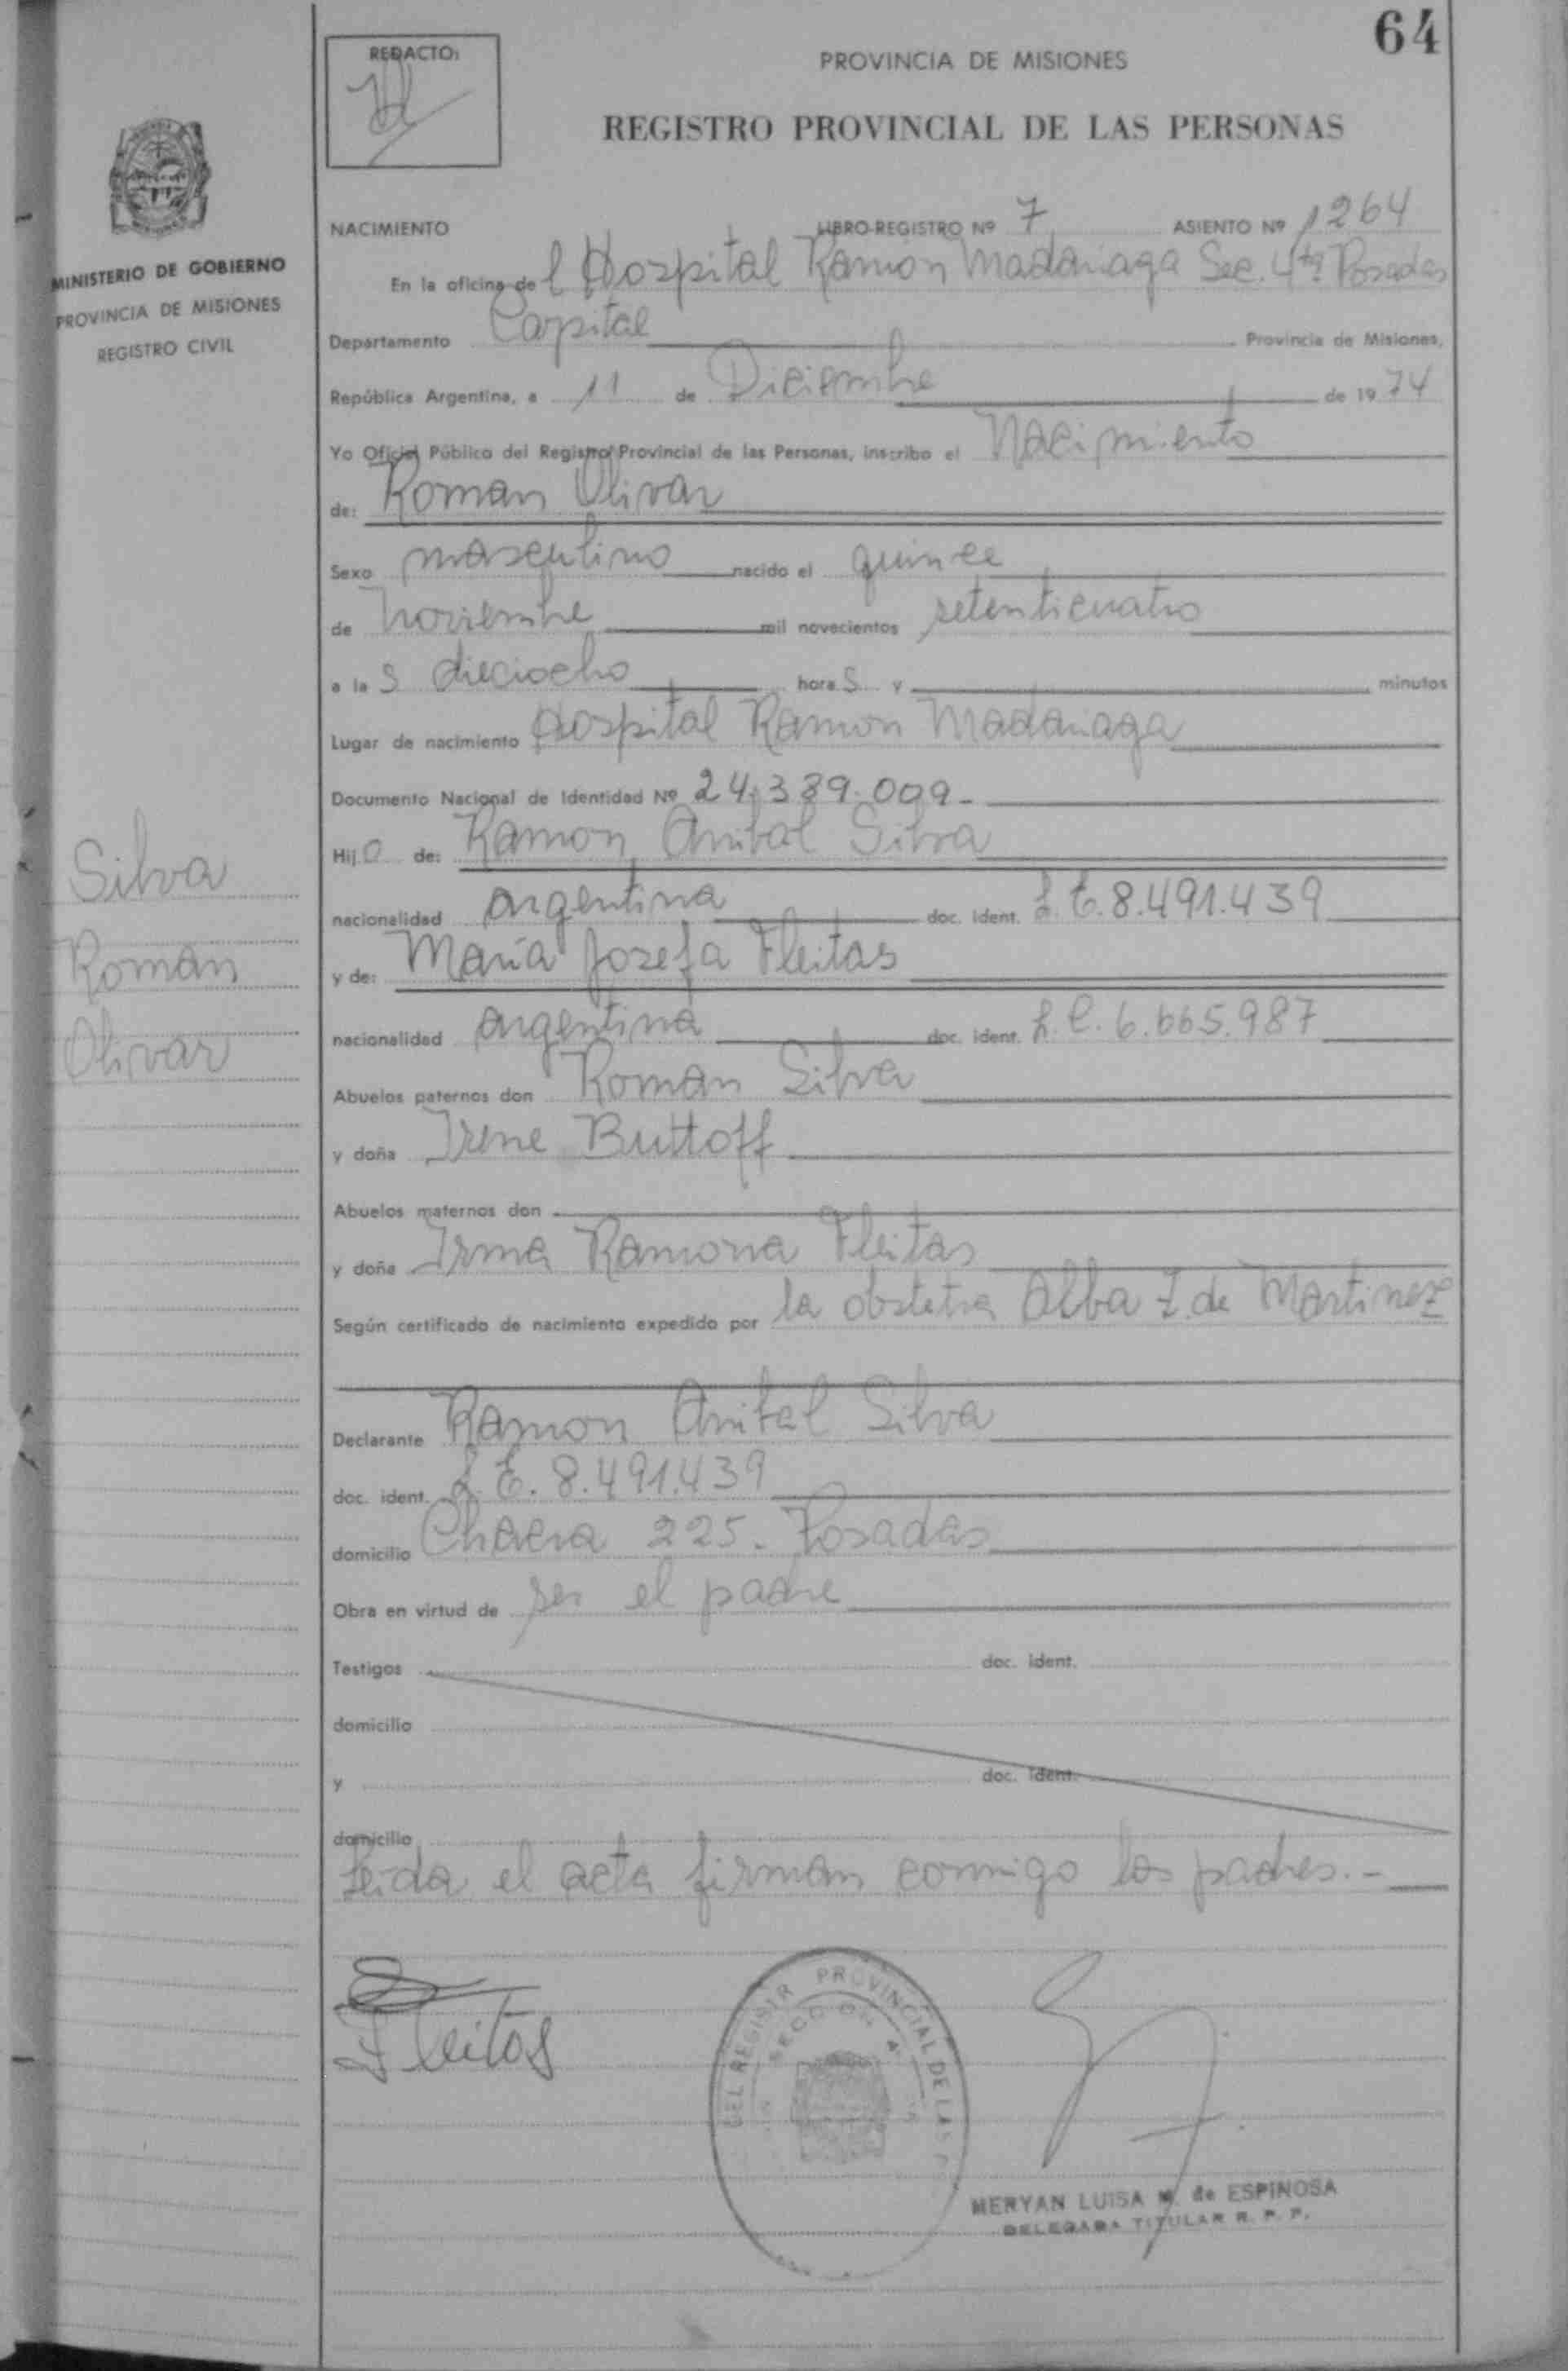 64
REDACTO:
PROVINCIA DE MISIONES
REGISTRO PROVINCIAL DE LAS PERSONAS
MINISTERIO DE GOBIERNO
PROVINCIA DE MISIONES
REGISTRO CIVIL
NACIMIENTO LIBRO-REGISTRO Nº 7 ASIENTO Nº 1264
En la oficina de l Hospital Ramon Madariaga Sec. 4ta Posadas
Departamento Capital Provincia de Misiones,
República Argentina, a 11 de Diciembre de 19 74
Yo Oficial Público del Registro Provincial de las Personas, inscribo el Nacimiento
de: Roman Olivar
Sexo masculino nacido el quince
de noviembre mil novecientos setenticuatro
a la s dieciocho hora s y minutos
Lugar de nacimiento Hospital Ramon Madariaga
Documento Nacional de Identidad Nº 24.389.009.-
Hij o de: Ramon Anibal Silva
nacionalidad argentina doc. ident. L.E. 8.491.439
y de: Maria Josefa Fleitas
nacionalidad argentina doc. ident. L.C. 6.665.987
Abuelos paternos don Roman Silva
y doña Irene Buttoff
Abuelos maternos don
y doña Irma Ramona Fleitas
Según certificado de nacimiento expedido por la obstetra Alba Z. de Martinez
Declarante Ramon Anibal Silva
doc. ident. L.E. 8.491.439
domicilio Chacra 225. Posadas
Obra en virtud de ser el padre
Testigos doc. ident.
domicilio
y doc. ident.
domicilio
Leida el acta firman conmigo los padres.-
Silva
Roman
Olivar
Fleitas
PROVINCIAL DE LAS
SECCION 4
MERYAN LUISA M. de ESPINOSA
DELEGADA TITULAR R. P. P.